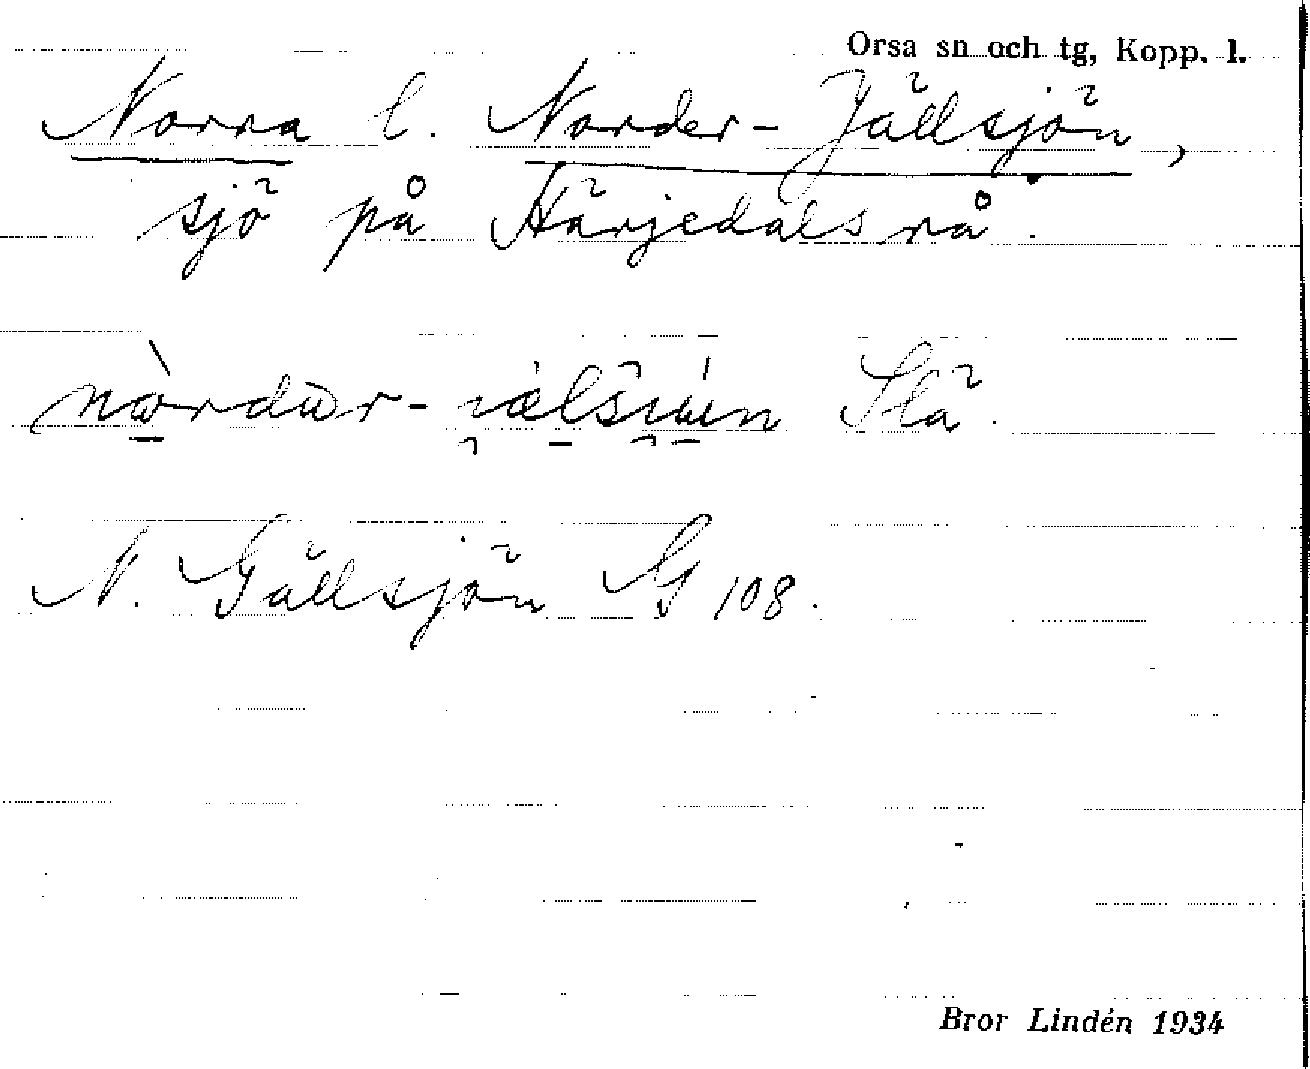 Orsa sn och tg, Kopp. l.
Norra l. Norder-Jällsjön,
sjö på Härjedalsrå.
Slä.
N. Gällsjön G 108.
Bror Lindén 1934